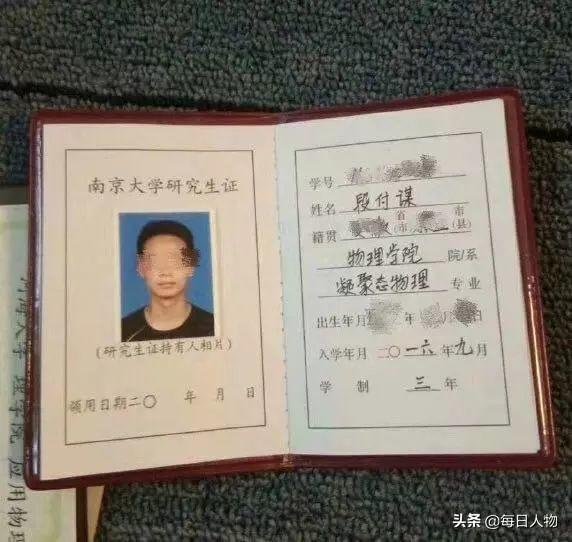 南京大学研究生证
(研究生证持有人相片)
领用日期二〇 年 月 日
学号
姓名 段付谋
籍贯 省市 市(县)
物理学院 院/系
凝聚态物理 专业
出生年月 年 月 日
入学年月 二〇一六年九月
学 制 三 年
理学院 应用物理
头条 @每日人物